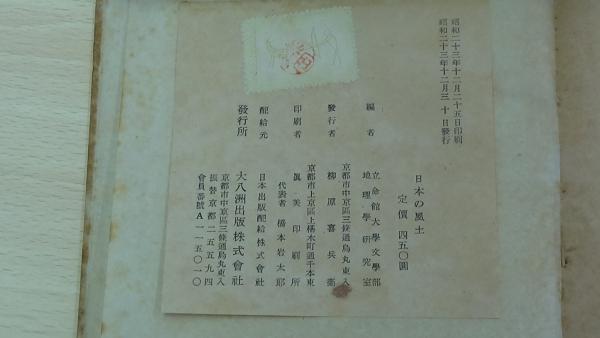 昭和二十三年十二月二十五日印刷
昭和二十三年十二月三十日發行
日本の風土
定價 四五〇圓
編者
立命館大學文學部
地理學研究室
發行者
京都市中京區三條通烏丸東入
柳原喜兵衞
印刷者
京都市上京區上樵木町通千本東
眞美印刷所
代表者 橋本岩太郎
配給元
日本出版配給株式會社
發行所
大八洲出版株式會社
京都市中京區三條通烏丸東入
振替京都二五五九四
會員番號A一一五〇一〇